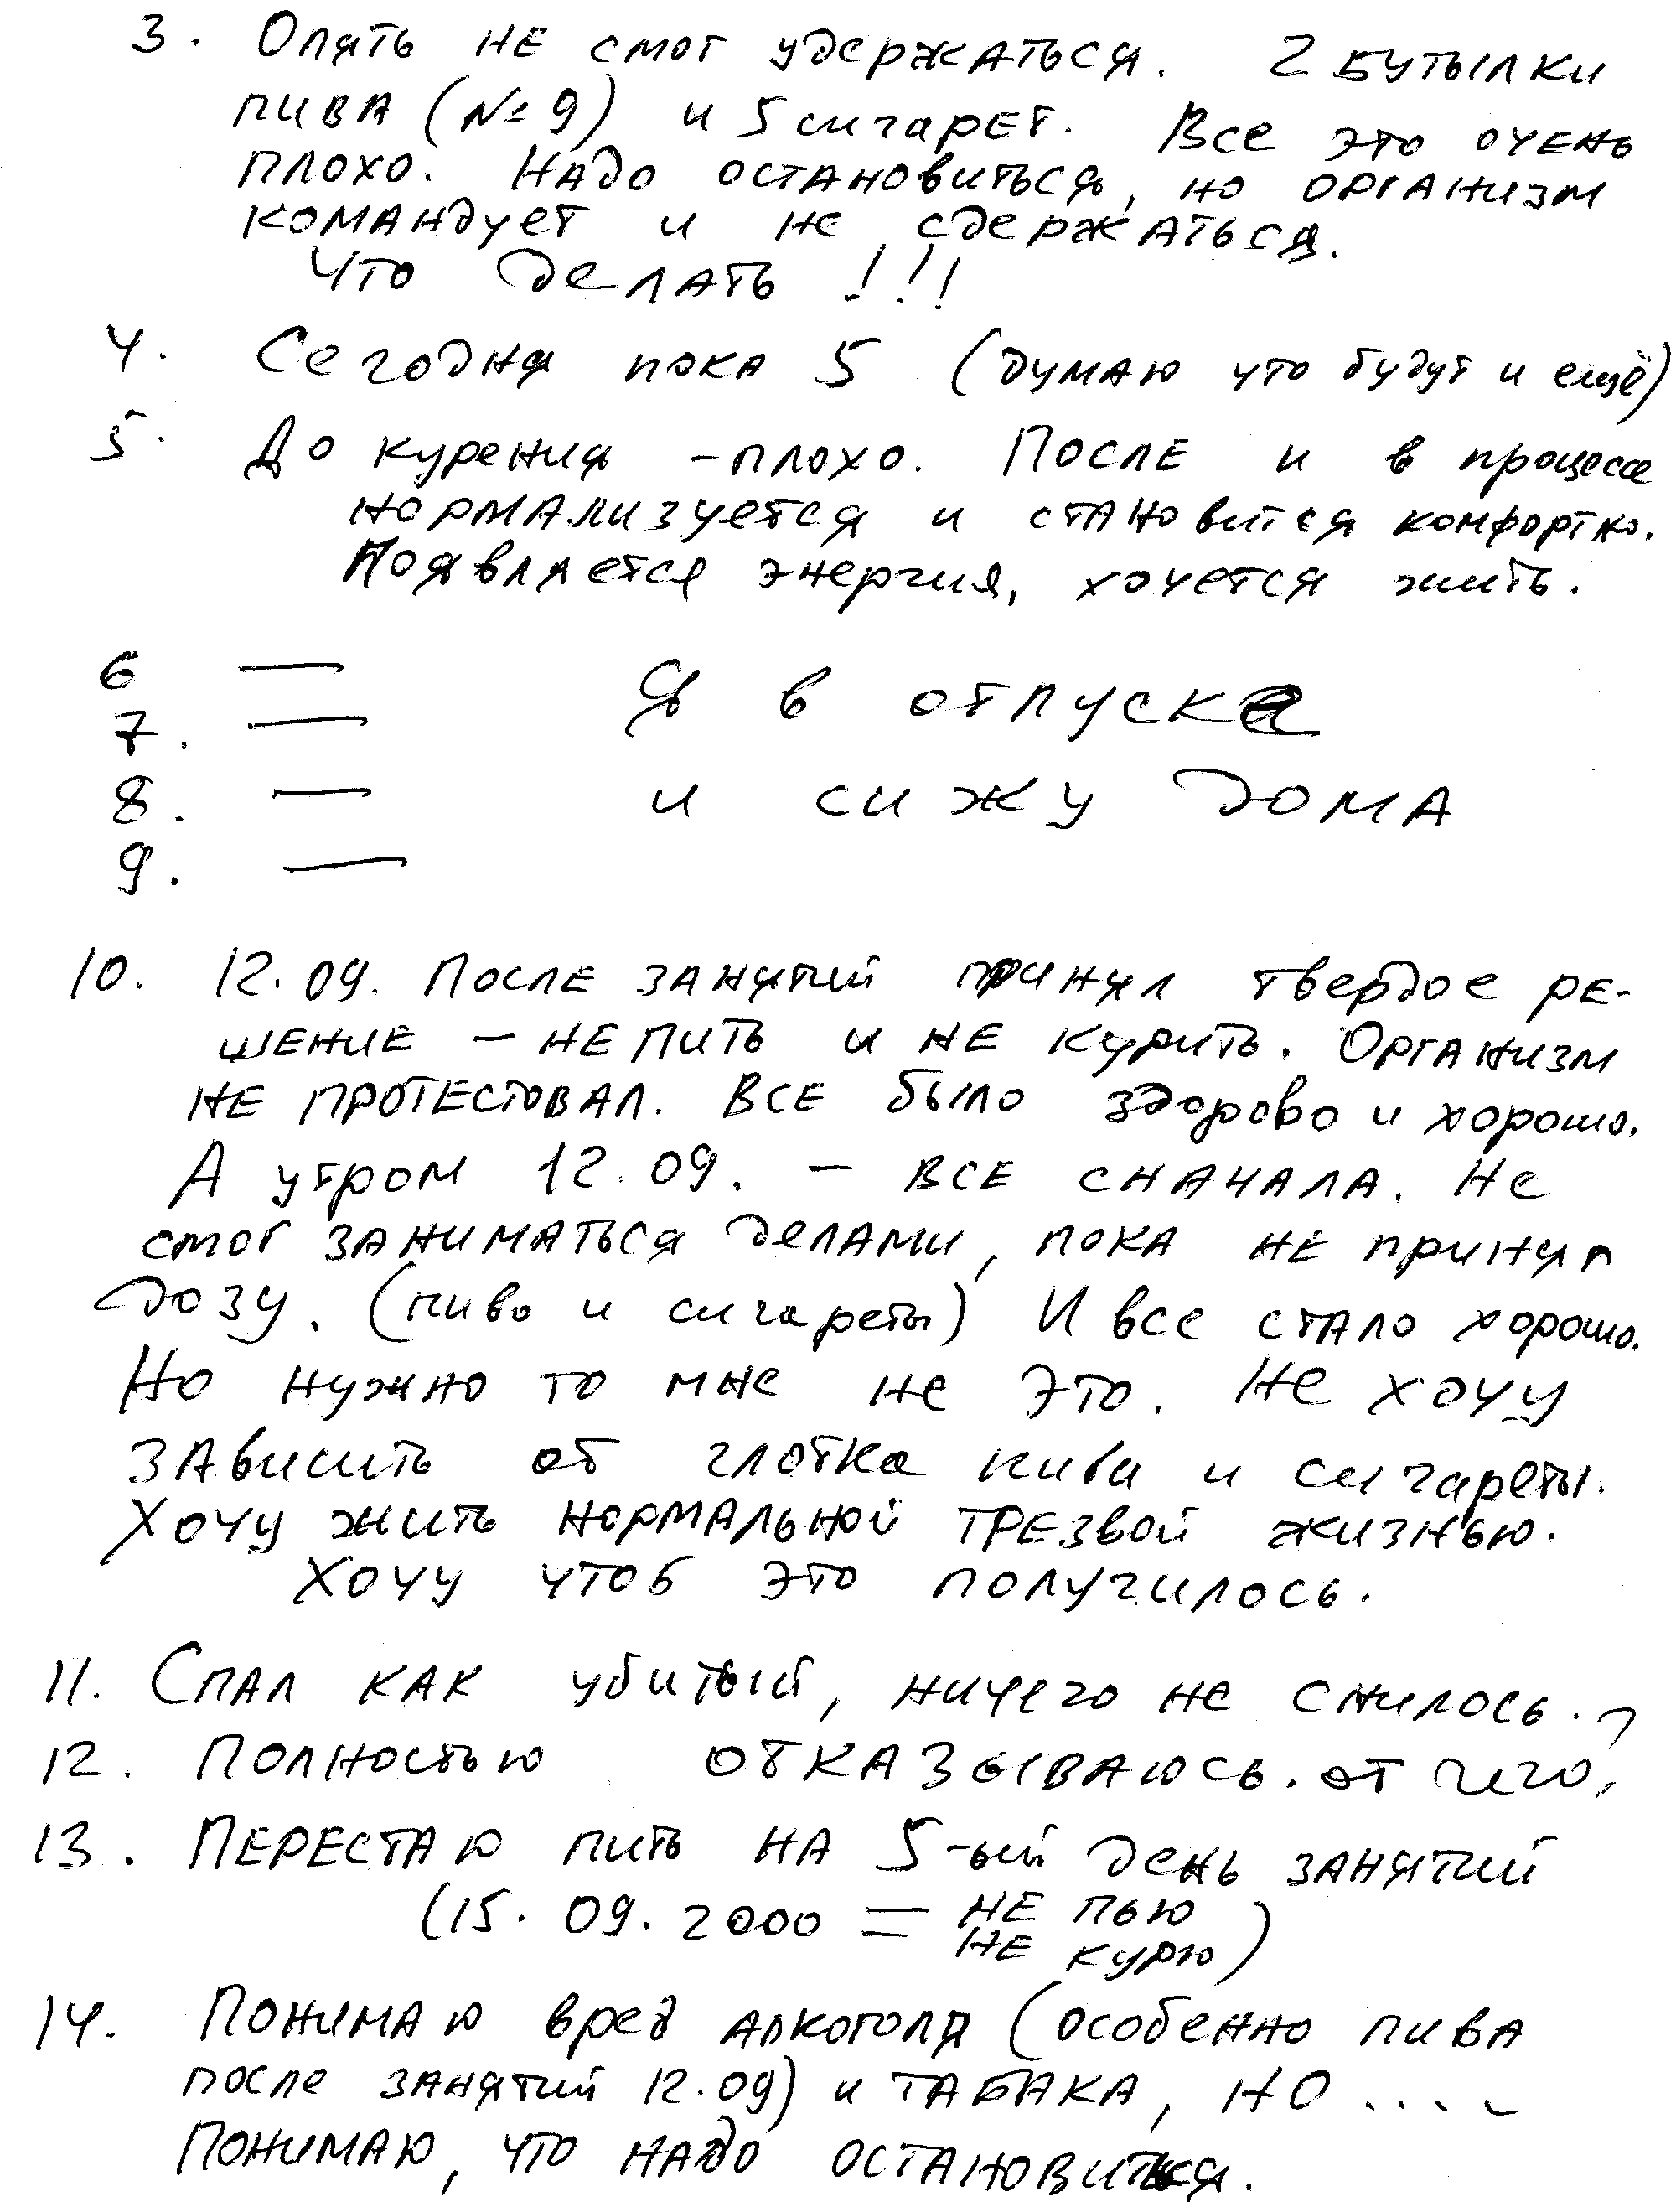 3. Опять не смог удержаться. 2 бутылки
пива (№ 9) и 5 сигарет. Все это очень
плохо. Надо остановиться, но организм
командует и не сдержаться.
Что делать!!!
4. Сегодня пока 5 (думаю что будут и ещё)
5. До курения - плохо. После и в процессе
нормализуется и становится комфортно.
Появляется энергия, хочется жить.
6 — Я в отпуске
7. —
8. — и сижу дома
9. —
10. 12.09. После занятий принял твердое ре-
шение - не пить и не курить. Организм
не протестовал. Все было здорово и хорошо.
А утром 12.09. - все сначала. Не
смог заниматься делами, пока не принял
дозу. (пиво и сигареты) И все стало хорошо.
Но нужно то мне не это. Не хочу
зависить от глотка пива и сигареты.
Хочу жить нормальной трезвой жизнью.
Хочу чтоб это получилось.
11. Спал как убитый, ничего не снилось.
12. Полностью отказываюсь. от чего?
13. Перестаю пить на 5-ый день занятий
(15.09.2000 = не пью
не курю)
14. Понимаю вред алкоголя (особенно пива
после занятий 12.09) и табака, но ....
Понимаю, что надо остановиться.